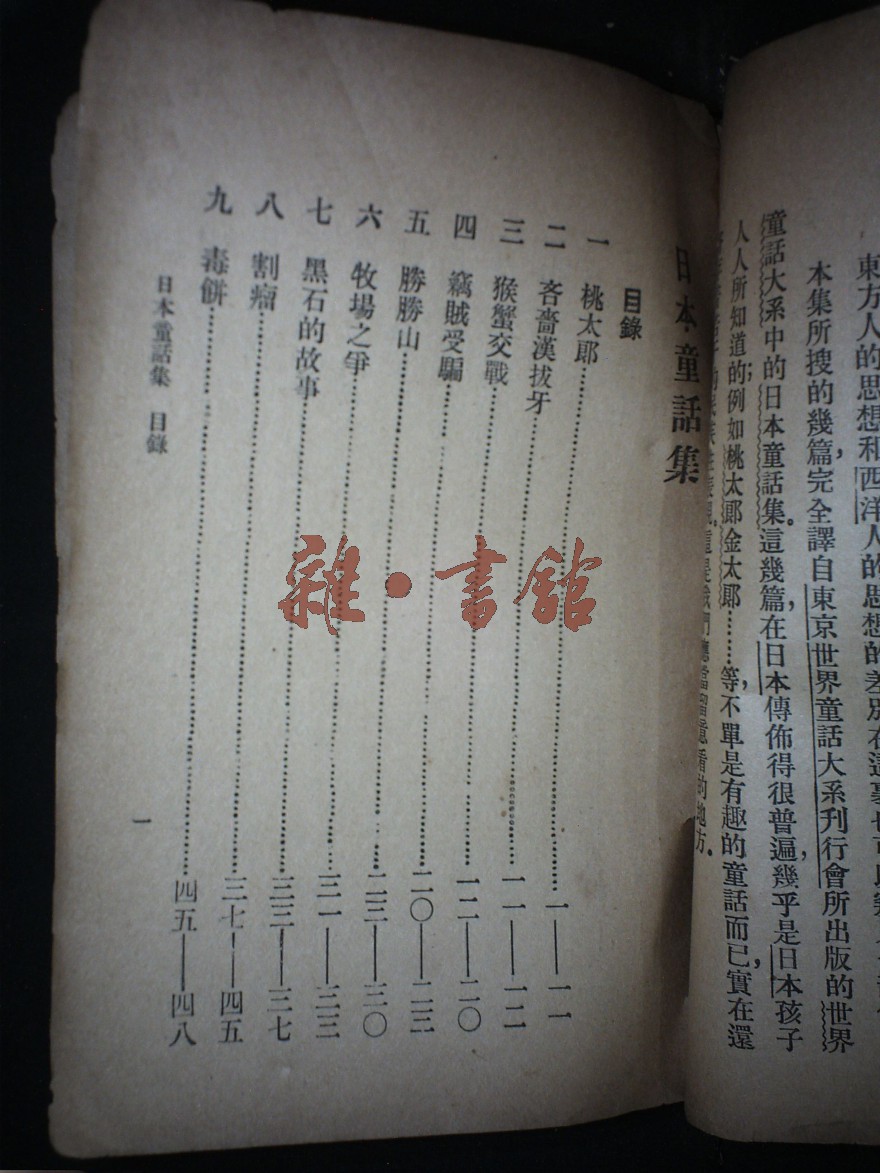 東方人的思想和西洋人的思想的差別在這裏也可以
本集所搜的幾篇,完全譯自東京世界童話大系刊行會所出版的世界
童話大系中的日本童話集。這幾篇,在日本傳佈得很普遍,幾乎是日本孩子
人人所知道的;例如桃太郎金太郎……等,不單是有趣的童話而已,實在還
這是我們應當留意看的地方。
日本童話集
目錄
一 桃太郎……一——一一
二 吝嗇漢拔牙……一一——一二
三 猴蟹交戰……一二——二〇
四 竊賊受騙……二〇——二三
五 勝勝山……二三——三〇
六 牧場之爭……三一——三三
七 黑石的故事……三三——三七
八 割瘤……三七——四五
九 毒餅……四五——四八
日本童話集 目錄
一
雜·書館